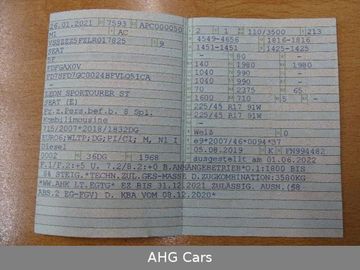 26.01.2021 7593 APC000050
M1 AC
VSSZZZ5FZLR017825 9
SEAT
5F
FDFGAX0V
FD7SFD7GC0024BFVLQ5ICA
—
LEON SPORTOURER ST
SEAT (E)
Fz.z.Pers.bef.b. 8 Spl.
Kombilimousine
715/2007*2018/1832DG
EURO6;WLTP;DG;PI/CI; M, N1 I
Diesel
0002 36DG 1968
P.1/T.2:+5 U, 7.2/8.2:+0 B.ANHÄNGEBETRIEB*O.1:1800 BIS
8% STEIG.*TECHN.ZUL.GES-MASSE D.ZUGKOMBINATION:3580KG
*WW.AHK LT.EGTG* EZ BIS 31.12.2021 ZULÄSSIG. AUSN.(§8
ABS.2 EG-FGV) D. KBA VOM 09.12.2020*
2 1 110/3500 213
4549-4656 1816-1816
1451-1451 1425-1425
— 80 —
140 1980 1980
1040 990 —
1040 990 —
70 2375 65
1600 710 5 —
225/45 R17 91W
225/45 R17 91W
—
Weiß 0
e9*2007/46*0094*37
05.08.2019 K FN994482
ausgestellt am 01.06.2022
AHG Cars